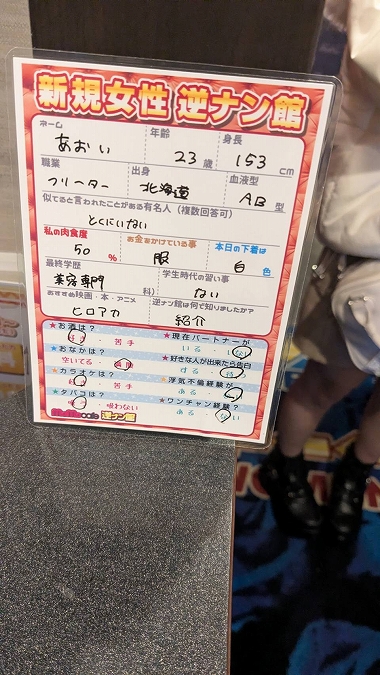 新規女性 逆ナン館
ネーム 年齢 身長
あおい 23歳 153cm
職業 出身 血液型
フリーター 北海道 AB型
似てると言われたことがある有名人（複数回答可）
とくにいない
私の肉食度 お金をかけている事 本日の下着は
50% 服 白色
最終学歴 学生時代の習い事
美容専門 科） ない
おすすめ映画・本・アニメ 逆ナン館は何で知りましたか？
ヒロアカ 紹介
★お酒は？ ★現在パートナーが
好き・苦手 いる・ない
★おなかは？ ★好きな人が出来たら告白
空いてる・満腹 する・待つ
★カラオケは？ ★浮気不倫経験が
好き・苦手 ある・ない
★タバコは？ ★ワンチャン経験？
・吸わない ある・ない
cafe 逆ナン館